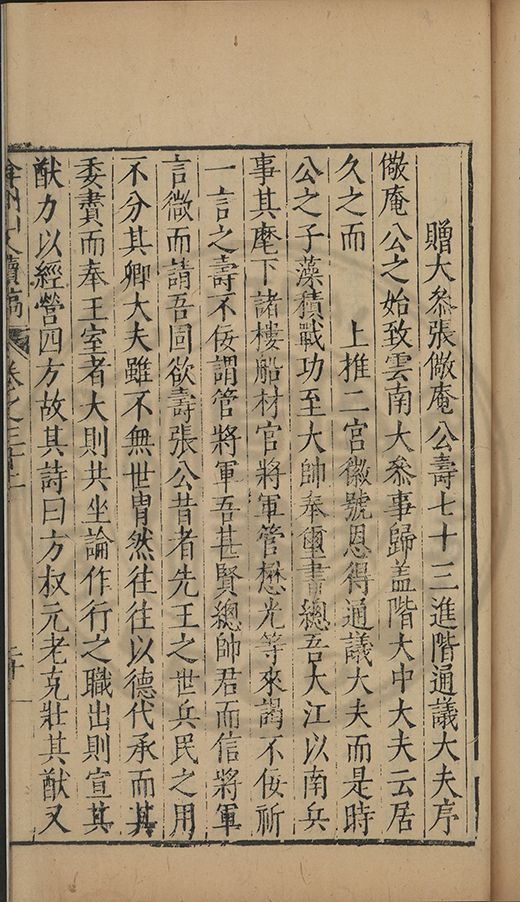 贈大叅張儆庵公壽七十三進階通議大夫序
儆庵公之始致雲南大叅事歸盖階大中大夫云居
久之而　上推二宮徽號恩得通議大夫而是時
公之子藻積戰功至大帥奉璽書總吾大江以南兵
事其麾下諸樓船材官將軍管懋光等來謁不佞祈
一言之壽不佞謂管將軍吾甚賢總帥君而信將軍
言微而請吾固欲壽張公昔者先王之世兵民之用
不分其卿大夫雖不無世胄然往往以德代承而其
委賮而奉王室者大則共坐論作行之職出則宣其
猷力以經營四方故其詩曰方叔元老克壯其猷又
弇州山人續稿　卷之三十二